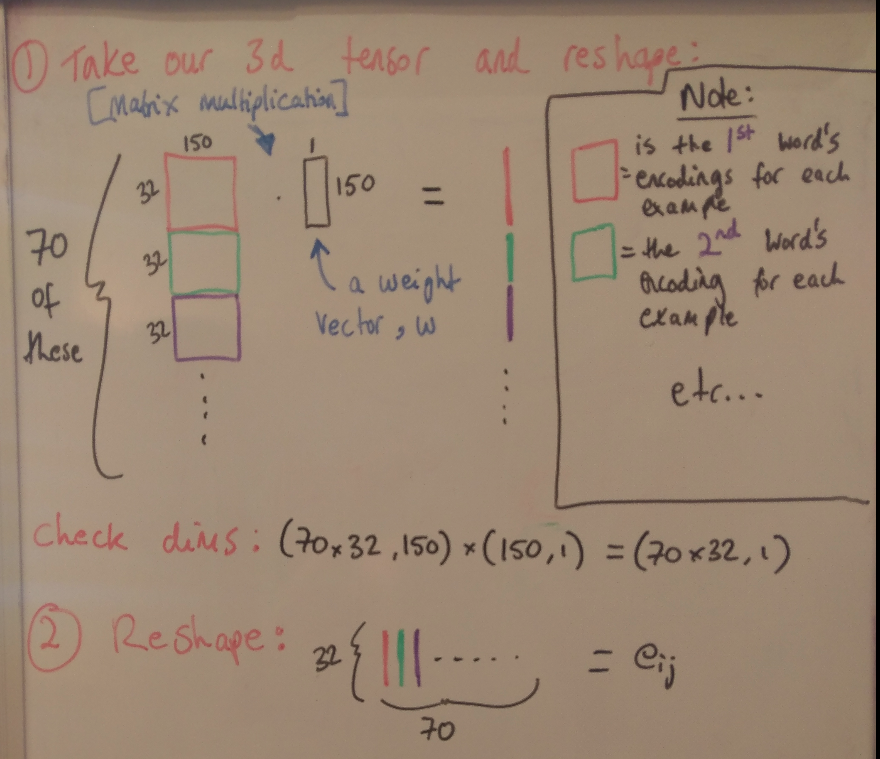 ① Take our 3d tensor and reshape:
[Matrix multiplication]
150
32
32
32
70
of
these
.
1
150
=
a weight
vector, w
Note:
is the 1st word's
= encodings for each
example
= the 2nd word's
encoding for each
example
etc...
check dims: (70×32,150) × (150,1) = (70×32,1)
② Reshape: 32 { ..... = eij
70